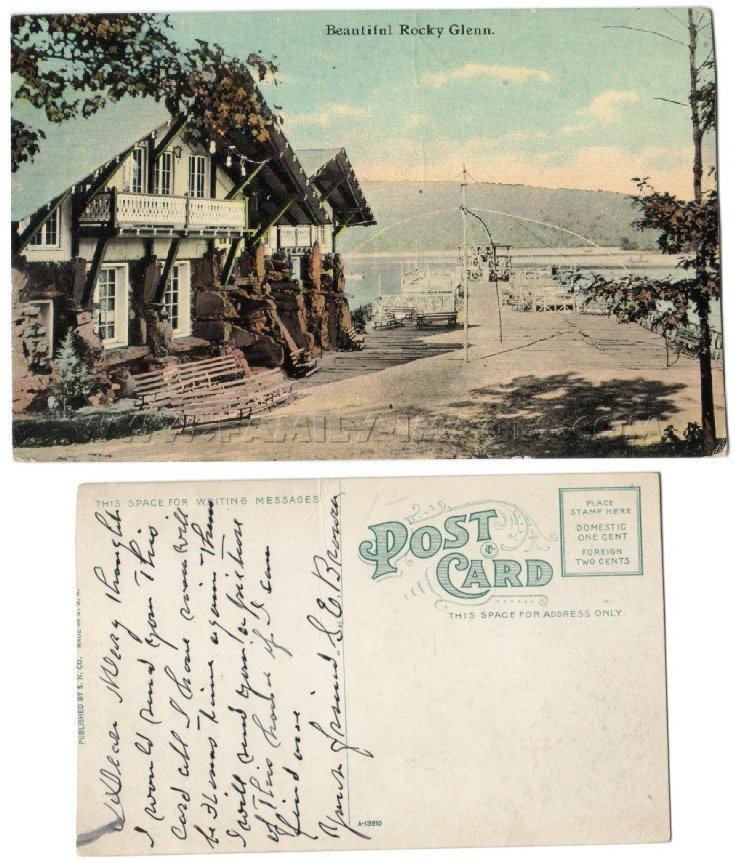 Beautiful Rocky Glenn.
WWW.FAMILY-IMAGES.COM
THIS SPACE FOR WRITING MESSAGES
Dear Mary thought
I would send you This
card all I have now will
be Home again Then
I will send you a picture
of This house if I can
find one
Your friend S E Brown
PUBLISHED BY S. N. CO. MADE IN U. S. A.
POST CARD
THIS SPACE FOR ADDRESS ONLY.
PLACE
STAMP HERE
DOMESTIC
ONE CENT
FOREIGN
TWO CENTS
A-13810